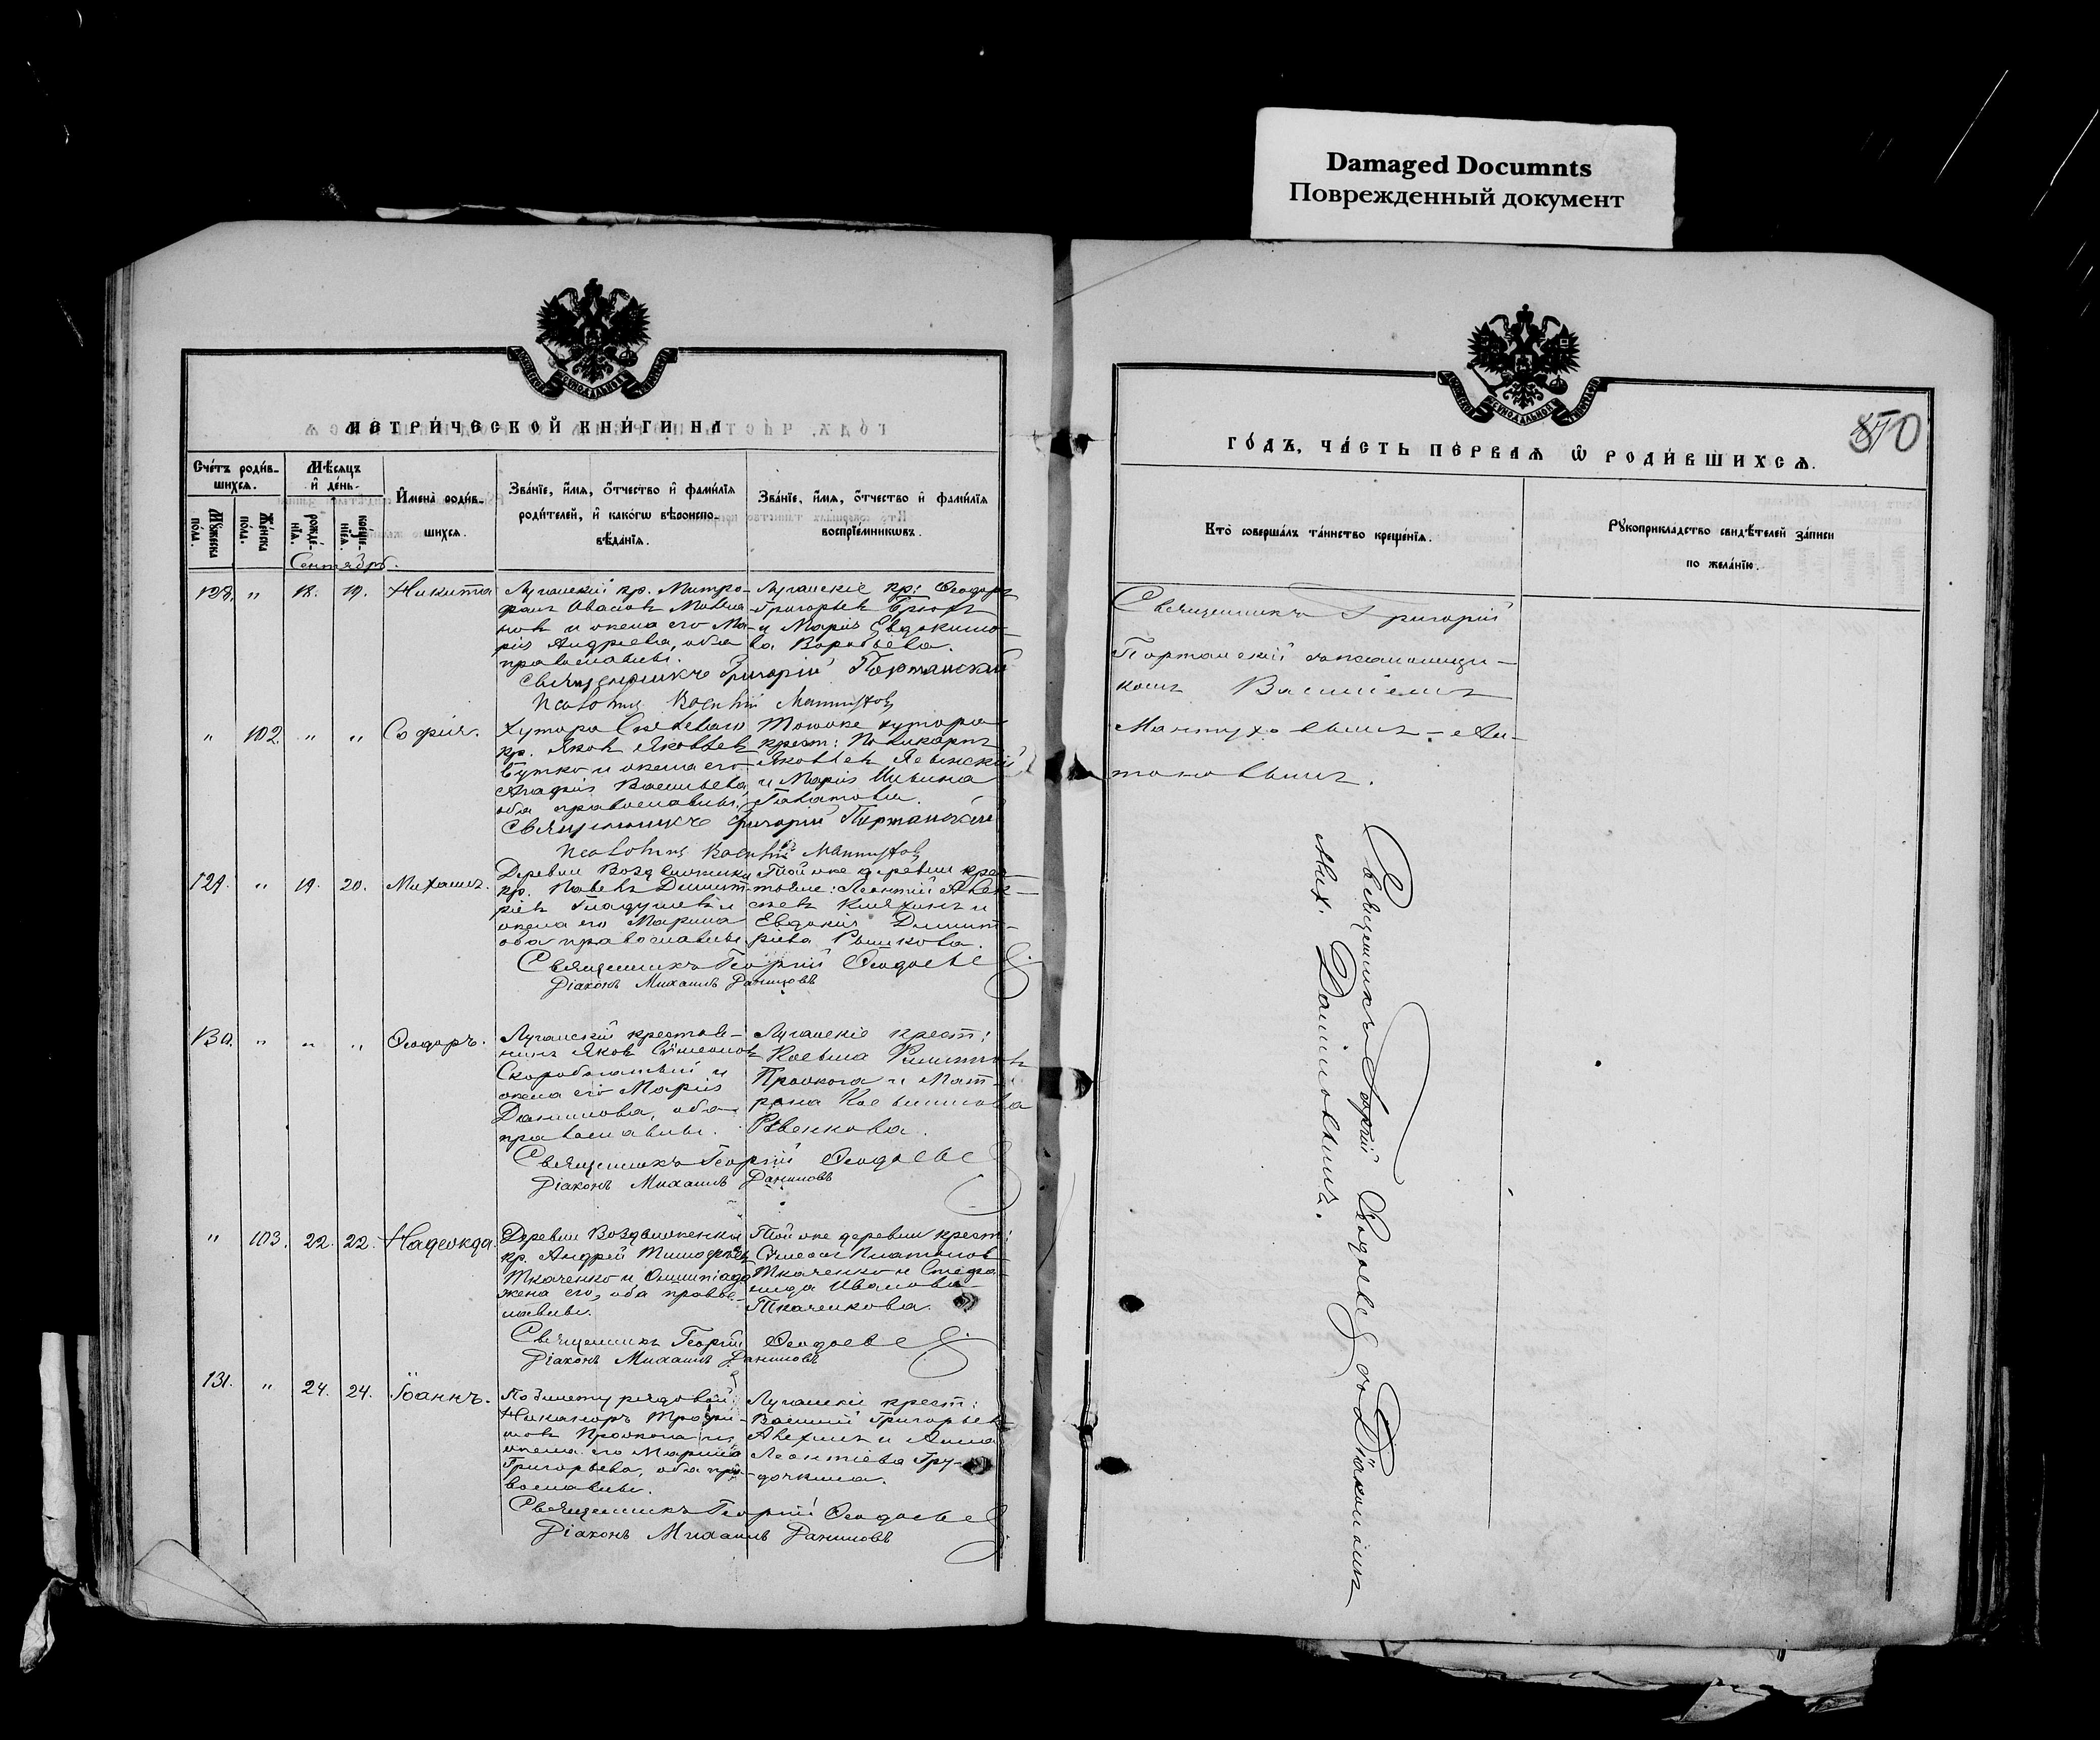 Damaged Documnts
Поврежденный документ
МЕТРИ́ЧЕСКОЙ КНИ́ГИ НА
Сче́тъ роди́в-
шихся.
Мѣ́сяцъ
и҆ де́нь.
И҆мена̀ роди́в-
шихся.
Зва́нїе, и҆́мя, ѻ҆́тчество и҆ фами́лїя
роди́телей, и҆ како́гѡ вѣроиспо-
вѣ́данїя.
Зва́нїе, и҆́мя, ѻ҆́тчество и҆ фами́лїя
воспрїе́мникѡвъ.
Мꙋ́жеска
по́ла.
Же́нска
по́ла.
рожде́-
нїя.
креще́-
нїя.
Сентябрь.
128. " 18. 19. Никита
Луганскій кр. Митро-
фанъ Ивановъ
и жена его Ма-
рія Андреева, оба
православны.
Луганскіе кр: Ѳеодоръ
Григорьевъ
и Марія Евдокимо-
ва Воробьева.
Священникъ Григорій Портанскій
Псаломщ. Василій Мантухов
" 102. " " Софія.
Хутора
кр. Яковъ Яковлевъ
Бутко и жена его
Агафія Васильева,
оба православны.
Тогоже хутора
крест: Поликарпъ
Яковлевъ
и Марія Ильина
Священникъ Григорій Портанскій
Псаломщ. Василій Мантухов
129. " 19. 20. Михаилъ.
Деревни Воздвиженки
кр. Павелъ Димит-
ріевъ Гладушевъ и
жена его Марина
оба православны.
Той же деревни крес-
тьяне: Леонтій Алек-
сѣевъ и
Евдокія Димит-
ріева Рыжкова.
Священникъ Георгій Ѳедоевъ
Діаконъ Михаилъ Даниловъ
130. " " " Ѳеодоръ.
Луганскій крестья-
нинъ Яковъ Симеоновъ
Скоробогатый и
жена его Марія
Данилова, оба
православны.
Луганскіе крест:
Косьма Филиповъ
Проскога и Мат-
рона Косьминова
Ревенкова.
Священникъ Георгій Ѳедоевъ
Діаконъ Михаилъ Даниловъ
" 103. 22. 22. Надежда.
Деревни Воздвиженки
кр. Андрей Тимофеевъ
Ткаченко и Олимпіада
жена его, оба правос-
лавны.
Той же деревни крест:
Симеонъ Платоновъ
Ткаченко и Стефа-
нида Иванова
Ткаченкова.
Священникъ Георгій Ѳедоевъ
Діаконъ Михаилъ Даниловъ
131. " 24. 24. Іоаннъ.
По билету рядовой
Никаноръ Трофи-
мовъ и
жена его Марина
Григорьева, оба пра-
вославны.
Луганскіе крест:
Василій Григорьевъ
Авехинъ и Анна
Леонтіева Гру-
дочкина.
Священникъ Георгій Ѳедоевъ
Діаконъ Михаилъ Даниловъ
ГО́ДЪ, ЧА́СТЬ ПЕ́РВАЯ Ѽ РОДИ́ВШИХСЯ.
Кто̀ соверша́лъ та́инство креще́нїя.
Рꙋкоприкла́дство свидѣ́телей за́писи
по жела́нїю.
Священникъ Григорій
Портанскій съ псаломщи-
комъ Василіемъ
Мантуховымъ-Ан-
тоновымъ.
Священникъ Георгій Ѳедоевъ съ Діакономъ
Мих. Даниловымъ.